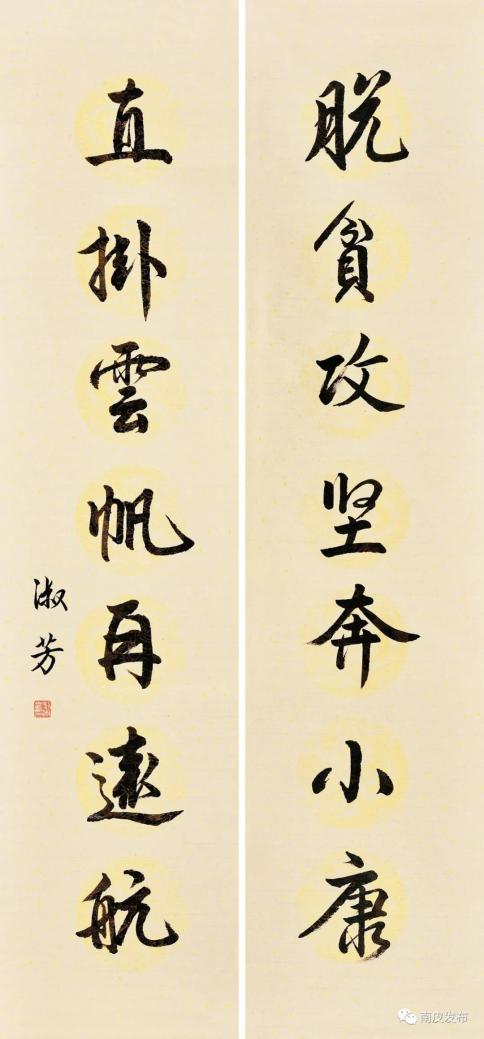 脱貧攻坚奔小康
直掛雲帆再遠航
淑芳
南皮发布